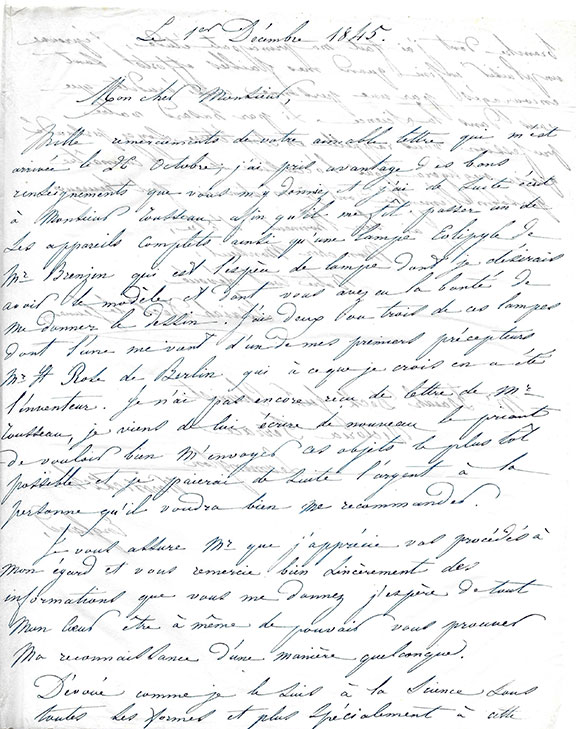 Le 1er Décembre 1845.
Mon cher Monsieur,
Mille remerciments de votre aimable lettre qui m'est
arrivée le 26 Octobre; j'ai pris avantage des bons
renseignements que vous m'y donnez et j'ai de suite écrit
à Monsieur Rousseau afin qu'il me fit passer un de
ses appareils complets ainsi qu'une lampe Eolipyle de
Mr qui est l'espèce de lampe dont je désirais
avoir le modèle et dont vous avez eu la bonté de
me donner le dessin. J'ai deux ou trois de ces lampes
dont l'une me vient d'un de mes premiers précepteurs
Mr H Rose de Berlin qui à ce que je crois en a été
l'inventeur. Je n'ai pas encore reçu de lettre de Mr
Rousseau, je viens de lui écrire de nouveau le priant
de vouloir bien m'envoyer ces objets le plus tôt
possible et je paierai de suite l'argent à la
personne qu'il voudra bien me recommander.
Je vous assure Mr que j'apprécie vos procédés à
mon égard et vous remercie bien sincèrement des
informations que vous me donnez j'espère de tout
mon cœur être à même de pouvoir vous prouver
ma reconnaissance d'une manière quelconque.
Dévoué comme je le suis à la Science sous
toutes ses formes et plus spécialement à cette